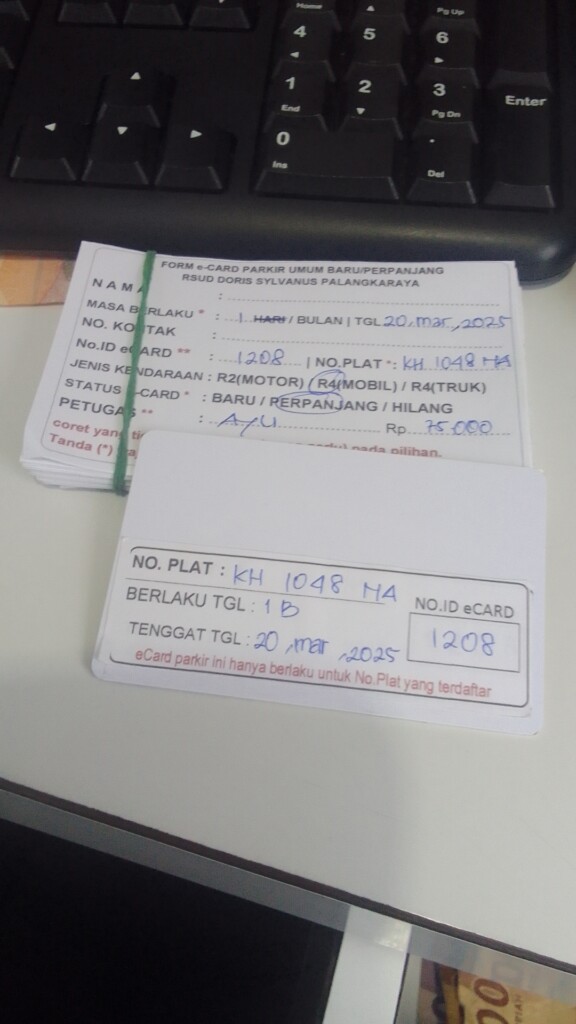 Home
Pg Up
4 5 6
1 2 3
End
Pg Dn
Enter
0
.
Ins
Del
FORM e-CARD PARKIR UMUM BARU/PERPANJANG
RSUD DORIS SYLVANUS PALANGKARAYA
NAMA :
MASA BERLAKU * : 1 HARI / BULAN | TGL 20, mar, 2025
NO. KONTAK :
No.ID eCARD ** : 1208 | NO.PLAT *: KH 1048 HA
JENIS KENDARAAN : R2(MOTOR) / R4(MOBIL) / R4(TRUK)
STATUS -CARD * : BARU / PERPANJANG / HILANG
PETUGAS ** : Ayu Rp 75.000
coret yang pada pilihan.
Tanda (*)
NO. PLAT : KH 1048 HA
BERLAKU TGL : 1 B
NO.ID eCARD
TENGGAT TGL : 20, mar, 2025
1208
eCard parkir ini hanya berlaku untuk No.Plat yang terdaftar